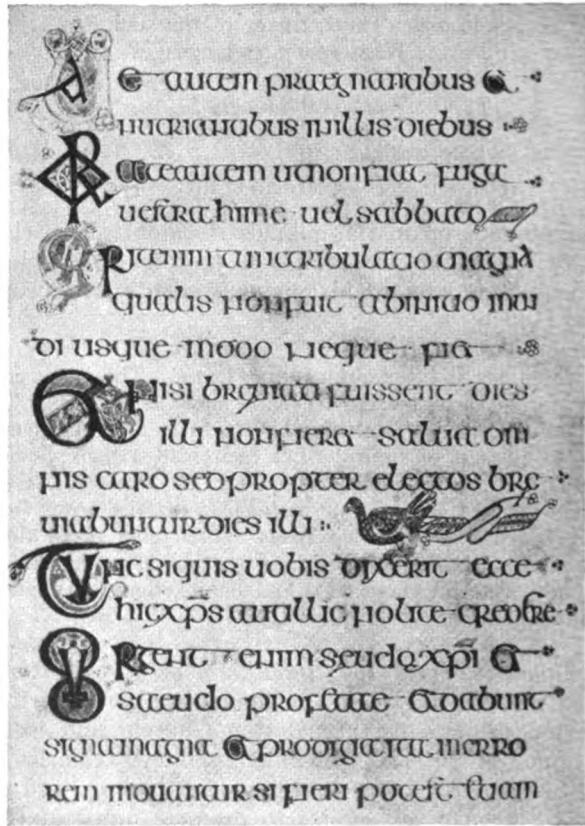 Uae autem praegnantibus et
nutrientibus inillis diebus
Orate autem utnonfiat fuga
uestra hime uel sabbato
Erit enim tunc tribulatio magna
qualis nonfuit abinitio mun
di usque modo neque fiet
Et nisi breuiati fuissent dies
illi nonfieret salua om
nis caro sed propter electos bre
uiabuntur dies illi
Tunc siquis uobis dixerit ecce
hic xps aut illic nolite credere
Surgent enim seudo xpi et
saeudo profetae et dabunt
signa magna et prodigia ita ut in erro
rem mouantur si fieri potest etiam